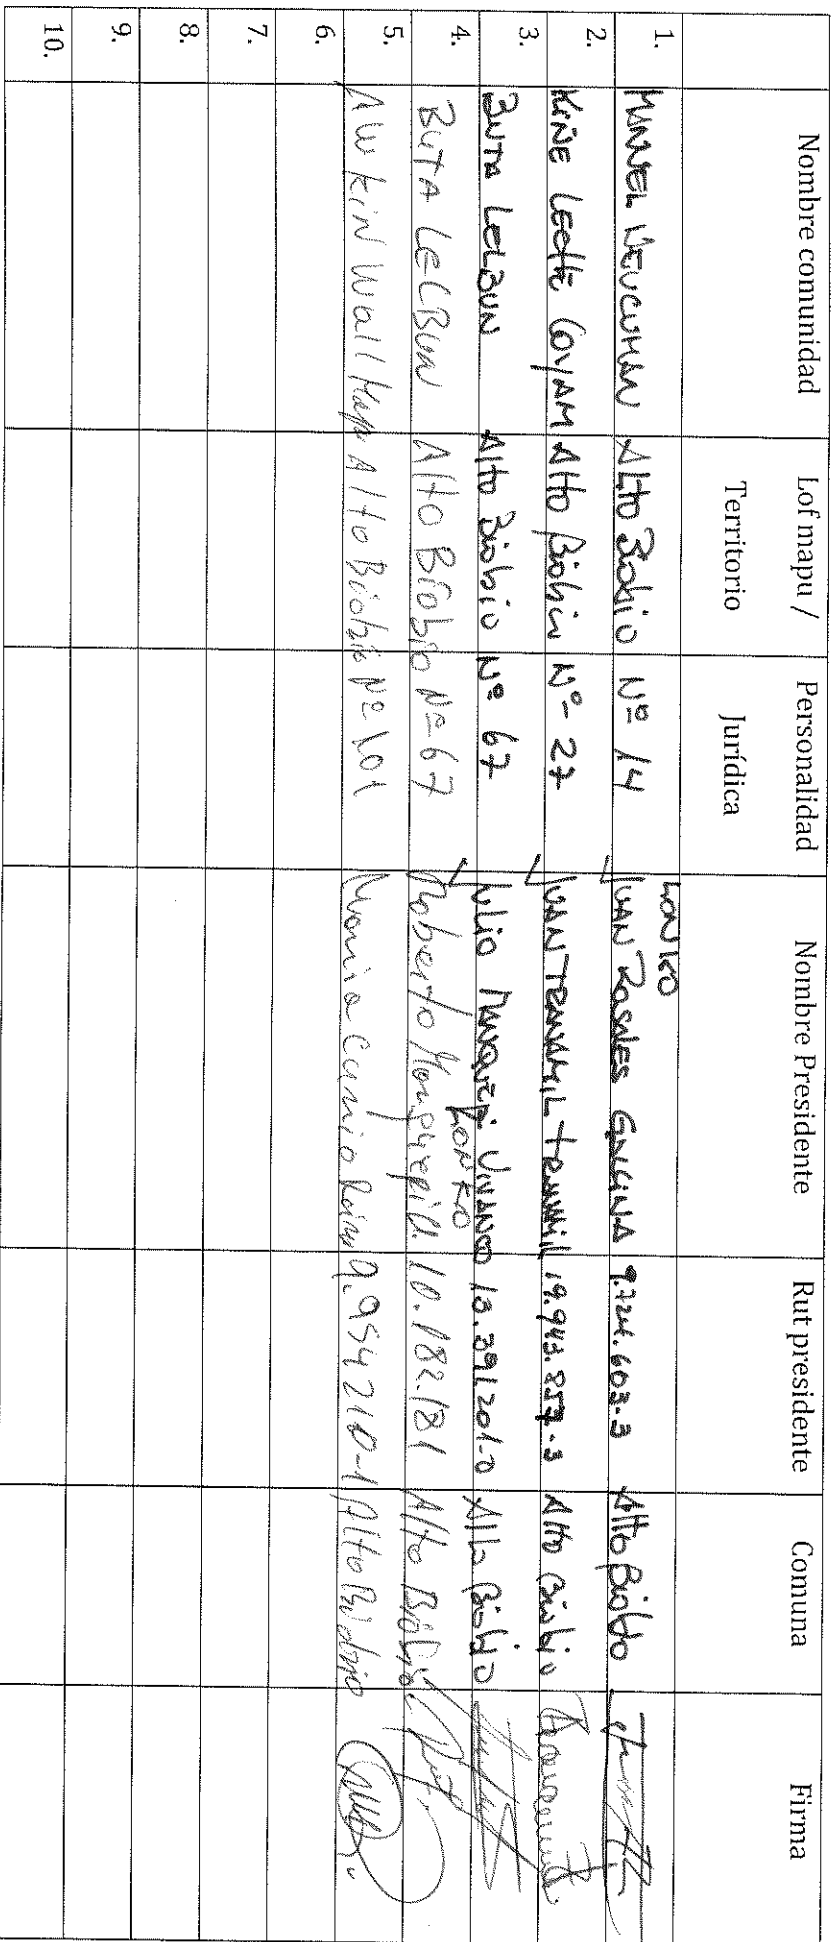 Nombre comunidad Lof mapu / Territorio Personalidad Jurídica Nombre Presidente Rut presidente Comuna Firma
LONKO
1. MANUEL NEUCUMAN Alto Biobio Nº 14 JUAN ROSALES 9.724.603-3 Alto Biobio
2. KIÑE LECHE COYAM Alto Biobio Nº 27 JUAN TRANAMIL TRANAMIL 19.943.857-3 Alto Biobio
3. BUTA LELBUN Alto Biobio Nº 67 Julio MANQUEPI VIVANCO 13.391.201-0 Alto Biobio
LONKO
4. BUTA LELBUN Alto Biobio Nº 67 Roberto Manquepi 10.182.181 Alto Biobio
5. AWKIN Wall Mapu Alto Biobio Nº 101 9.954210-1 Alto Biobio
6.
7.
8.
9.
10.